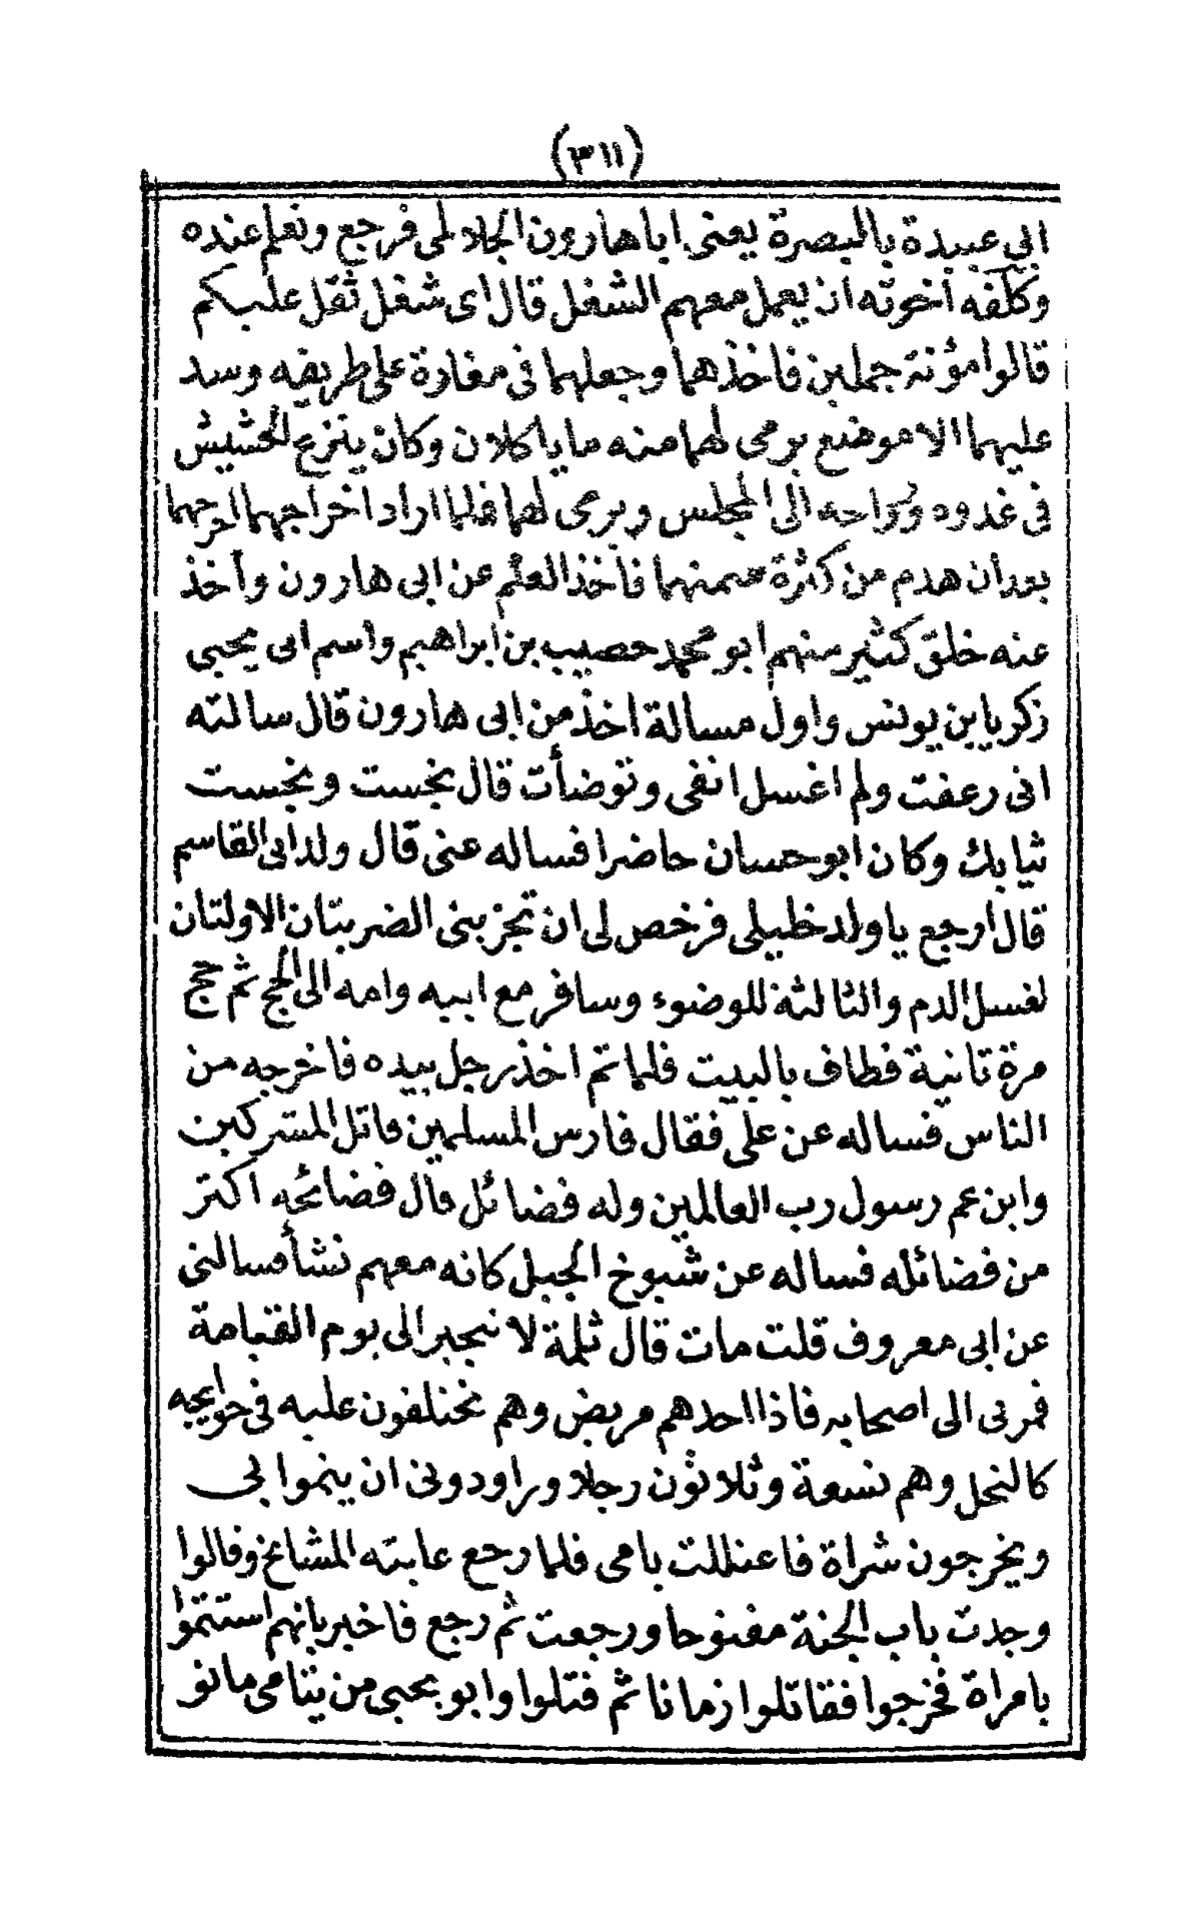 (٣١١)
ابي عبيدة بالبصرة يعنى ابا هارون الجلالمى فرجع وتعلم عنده
وكلفه اخوته ان يعمل معهم الشغل قال اى شغل ثقل عليكم
قالوا مؤنة جملين فاخذهما وجعلهما فى مغارة على طريقه وسد
عليهما الا موضع يرمى لهما منه ما ياكلان وكان ينزع الحشيش
فى غدوه ورواحه الى المجلس ويرمى لهما فلما اراد اخراجهما اخرجهما
بعد ان هدم من كثرة سمنهما فاخذ العلم عن ابى هارون وأخذ
عنه خلق كثير منهم ابو محمد خصيب بن ابراهيم واسم ابى يحيى
زكريا بن يونس واول مسالة اخذ من ابى هارون قال سالته
انى رعفت ولم اغسل انفى وتوضأت قال نجست ونجست
ثيابك وكان ابو حسان حاضرا فساله عنى قال ولد ابى القاسم
قال ارجع يا ولد خليلى فرخص لى ان تجزينى الضربتان الاولتان
لغسل الدم والثالثة للوضوء وسافر مع ابيه وامه الى الحج ثم حج
مرة ثانية فطاف بالبيت فلما تم اخذ رجل بيده فاخرجه من
الناس فساله عن على فقال فارس المسلمين قاتل المشركين
وابن عم رسول رب العالمين وله فضائل قال فضائحه اكثر
من فضائله فساله عن شيوخ الجبل كانه معهم نشأ فسالنى
عن ابى معروف قلت مات قال ثلمة لا تنجبر الى يوم القيامة
فمر بى الى اصحابه فاذا احدهم مريض وهم يختلفون عليه فى حوايجه
كالنحل وهم تسعة وثلاثون رجلا وراودونى ان يتموا بى
ويخرجون شراة فاعتللت بامى فلما رجع عابته المشايخ وقالوا
وجدت باب الجنة مفتوحا ورجعت ثم رجع فاخبر بانهم استتموا
بامراة فخرجوا فقاتلوا زمانا ثم قتلوا وابو يحيى من يتامى ماتو